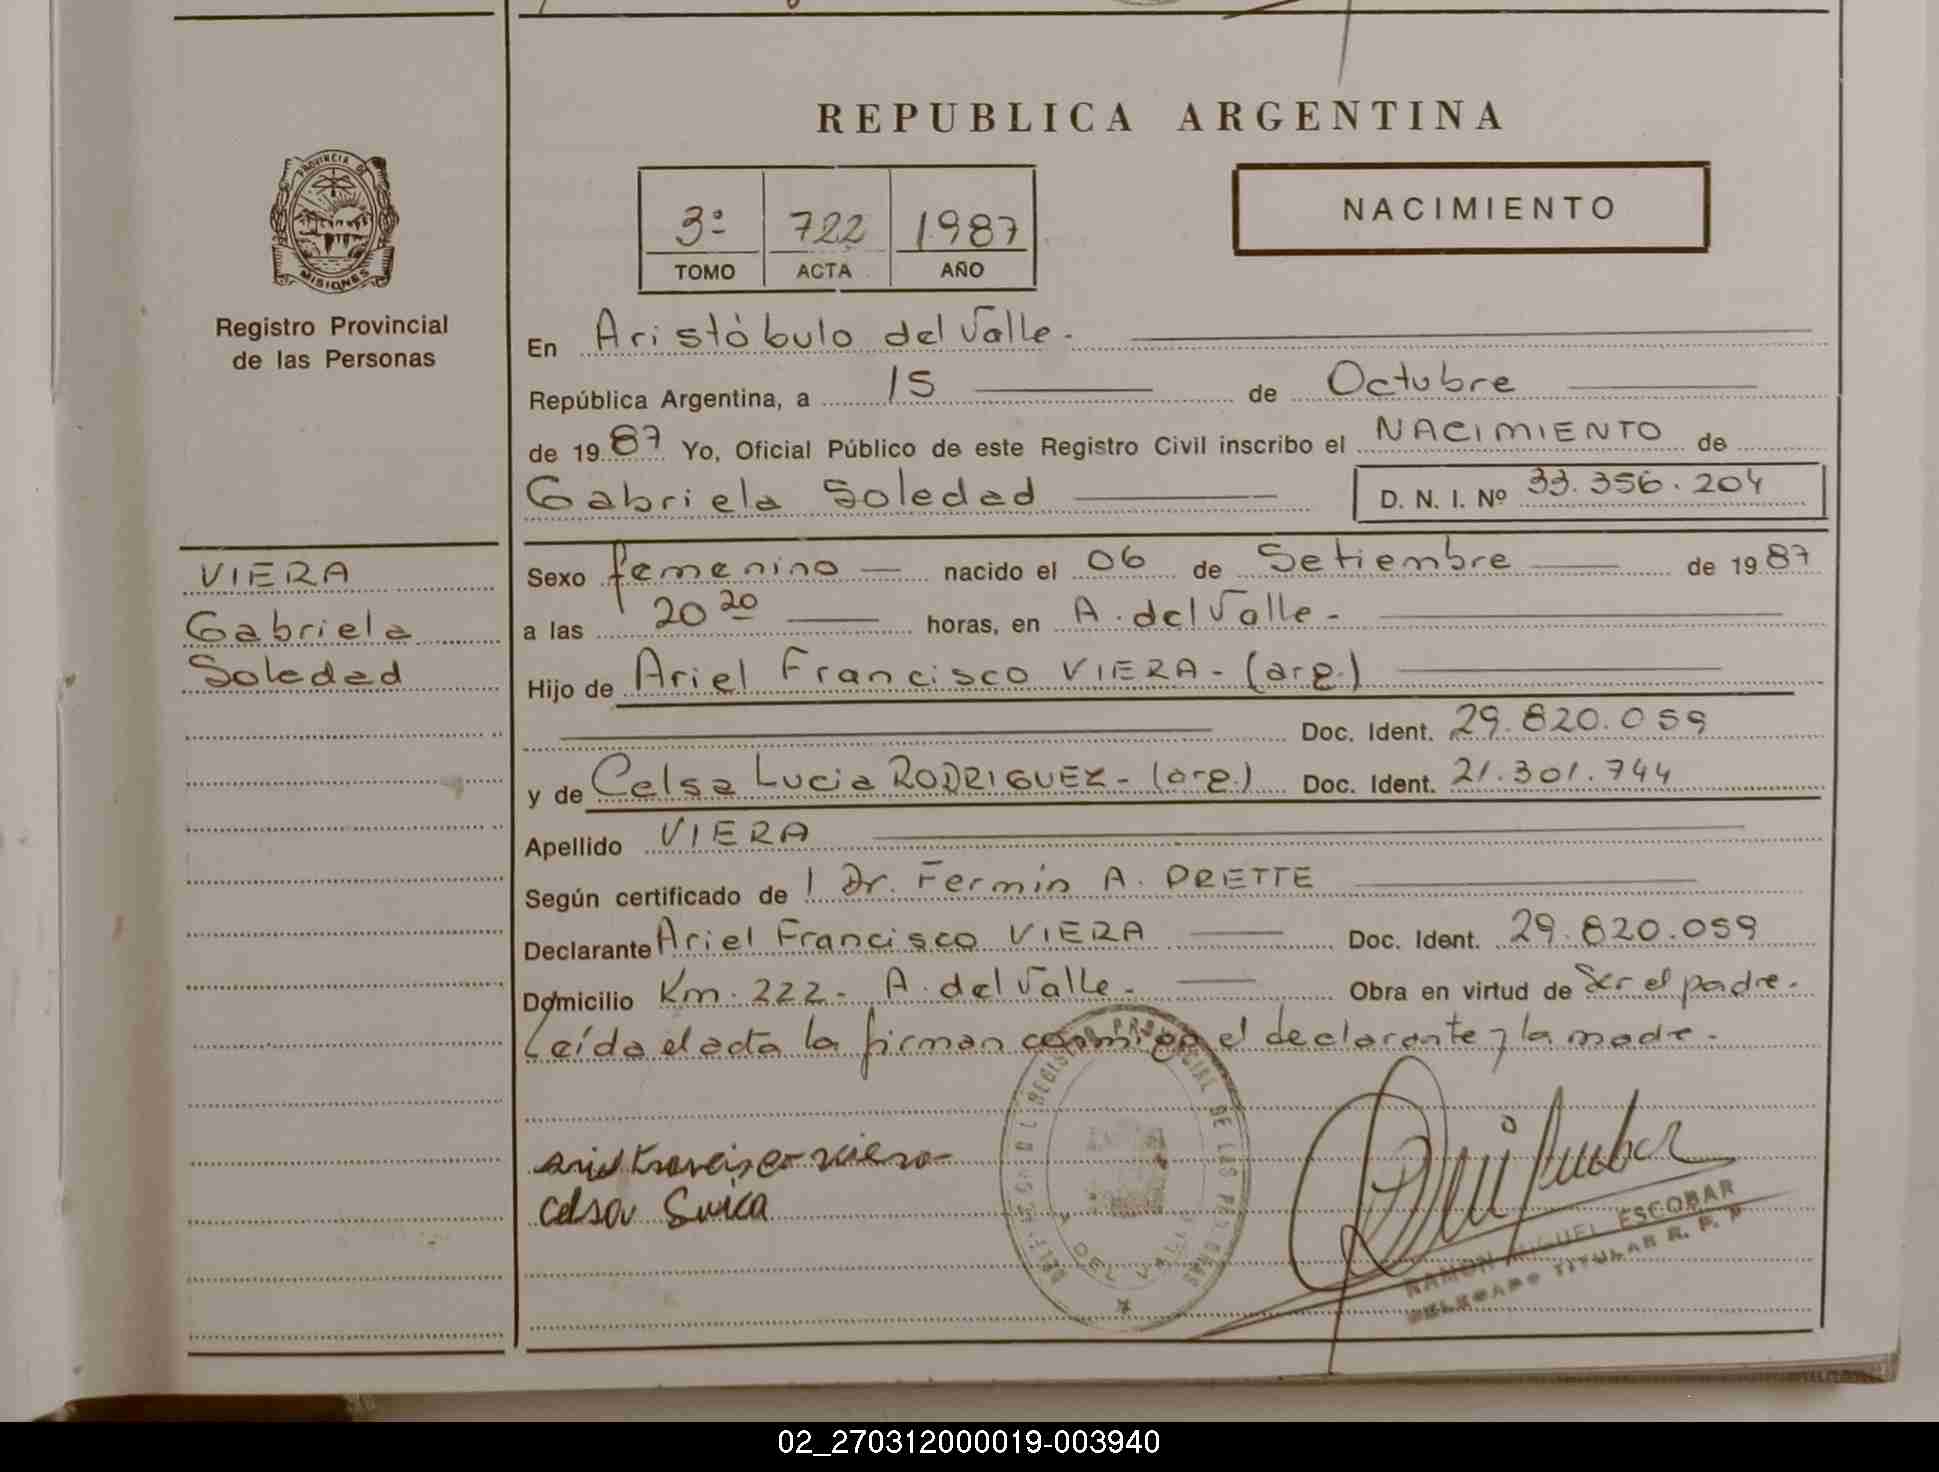 REPUBLICA ARGENTINA
PROVINCIA DE
MISIONES
Registro Provincial
de las Personas
3º 722 1987
TOMO ACTA AÑO
NACIMIENTO
En Aristóbulo del Valle.
República Argentina, a 15 de Octubre
de 1987 Yo, Oficial Público de este Registro Civil inscribo el NACIMIENTO de
Gabriela Soledad D. N. I. Nº 33.356.204
VIERA
Gabriela
Soledad
Sexo femenino nacido el 06 de Setiembre de 1987
a las 20 20 horas, en A. del Valle.
Hijo de Ariel Francisco VIERA - (arg.)
Doc. Ident. 29.820.059
y de Celsa Lucia RODRIGUEZ - (arg.) Doc. Ident. 21.301.744
Apellido VIERA
Según certificado de l Dr. Fermin A. PRETTE
Declarante Ariel Francisco VIERA Doc. Ident. 29.820.059
Domicilio Km. 222 - A. del Valle. Obra en virtud de Ser el padre.
Leída el acta la firman conmigo el declarante y la madre.
REGISTRO PROVINCIAL DE LAS PERSONAS
A. DEL VALLE
RAMON MIGUEL ESCOBAR
DELEGADO TITULAR R. P. P
02_270312000019-003940